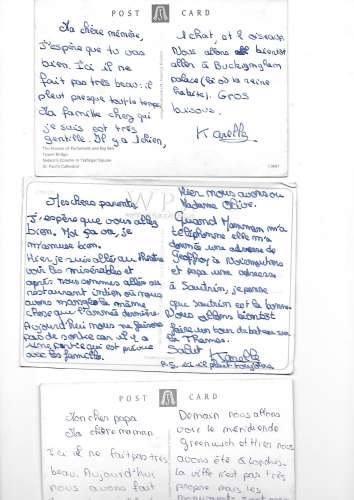 POST CARD
Ma chère mémère,
J'espère que tu vas
bien. Ici il ne
fait pas très beau: il
pleut presque tout le temps.
La famille chez qui
je suis est très
gentille. Il y a 1 chien,
The Houses of Parliament and Big Ben
Tower Bridge
Nelson's Column in Trafalgar Square
St. Paul's Cathedral
1 chat, et 1 oiseau
Nous allons bientôt
aller à Buckingham
palace (là où la reine
habite). Gros
bisous.
Karelle
Mes chers parents
J'espère que vous allez
bien. Moi ça va, je
m'amuse bien.
Hier je suis allée au théâtre
voir les misérables et
après nous sommes allés au
restaurant indien où nous
avons mangé la même
chose que l'année dernière.
Aujourd'hui nous ne faisons
pas de sortie car il y a
une qui est prévue
avec les familles.
Hier nous avons vu
Madame
Quand Maman m'a
téléphoné elle m'a
donné une adresse de
Geoffroy à Noirmoutiers
et papa une adresse
à Sautrin, je pense
que sautrin est la bonne.
Nous allons bientôt
faire un tour du bateau sur
la Thames.
Salut Karelle
P.S. ici il pleut toujours
POST CARD
Mon cher papa
Ma chère maman
Ici il ne fait pas très
beau. Aujourd'hui
nous avons fait
Demain nous allons
voir le méridien de
Greenwich et Hier nous
avons été à Londres.
la ville n'est pas très
propre mais les